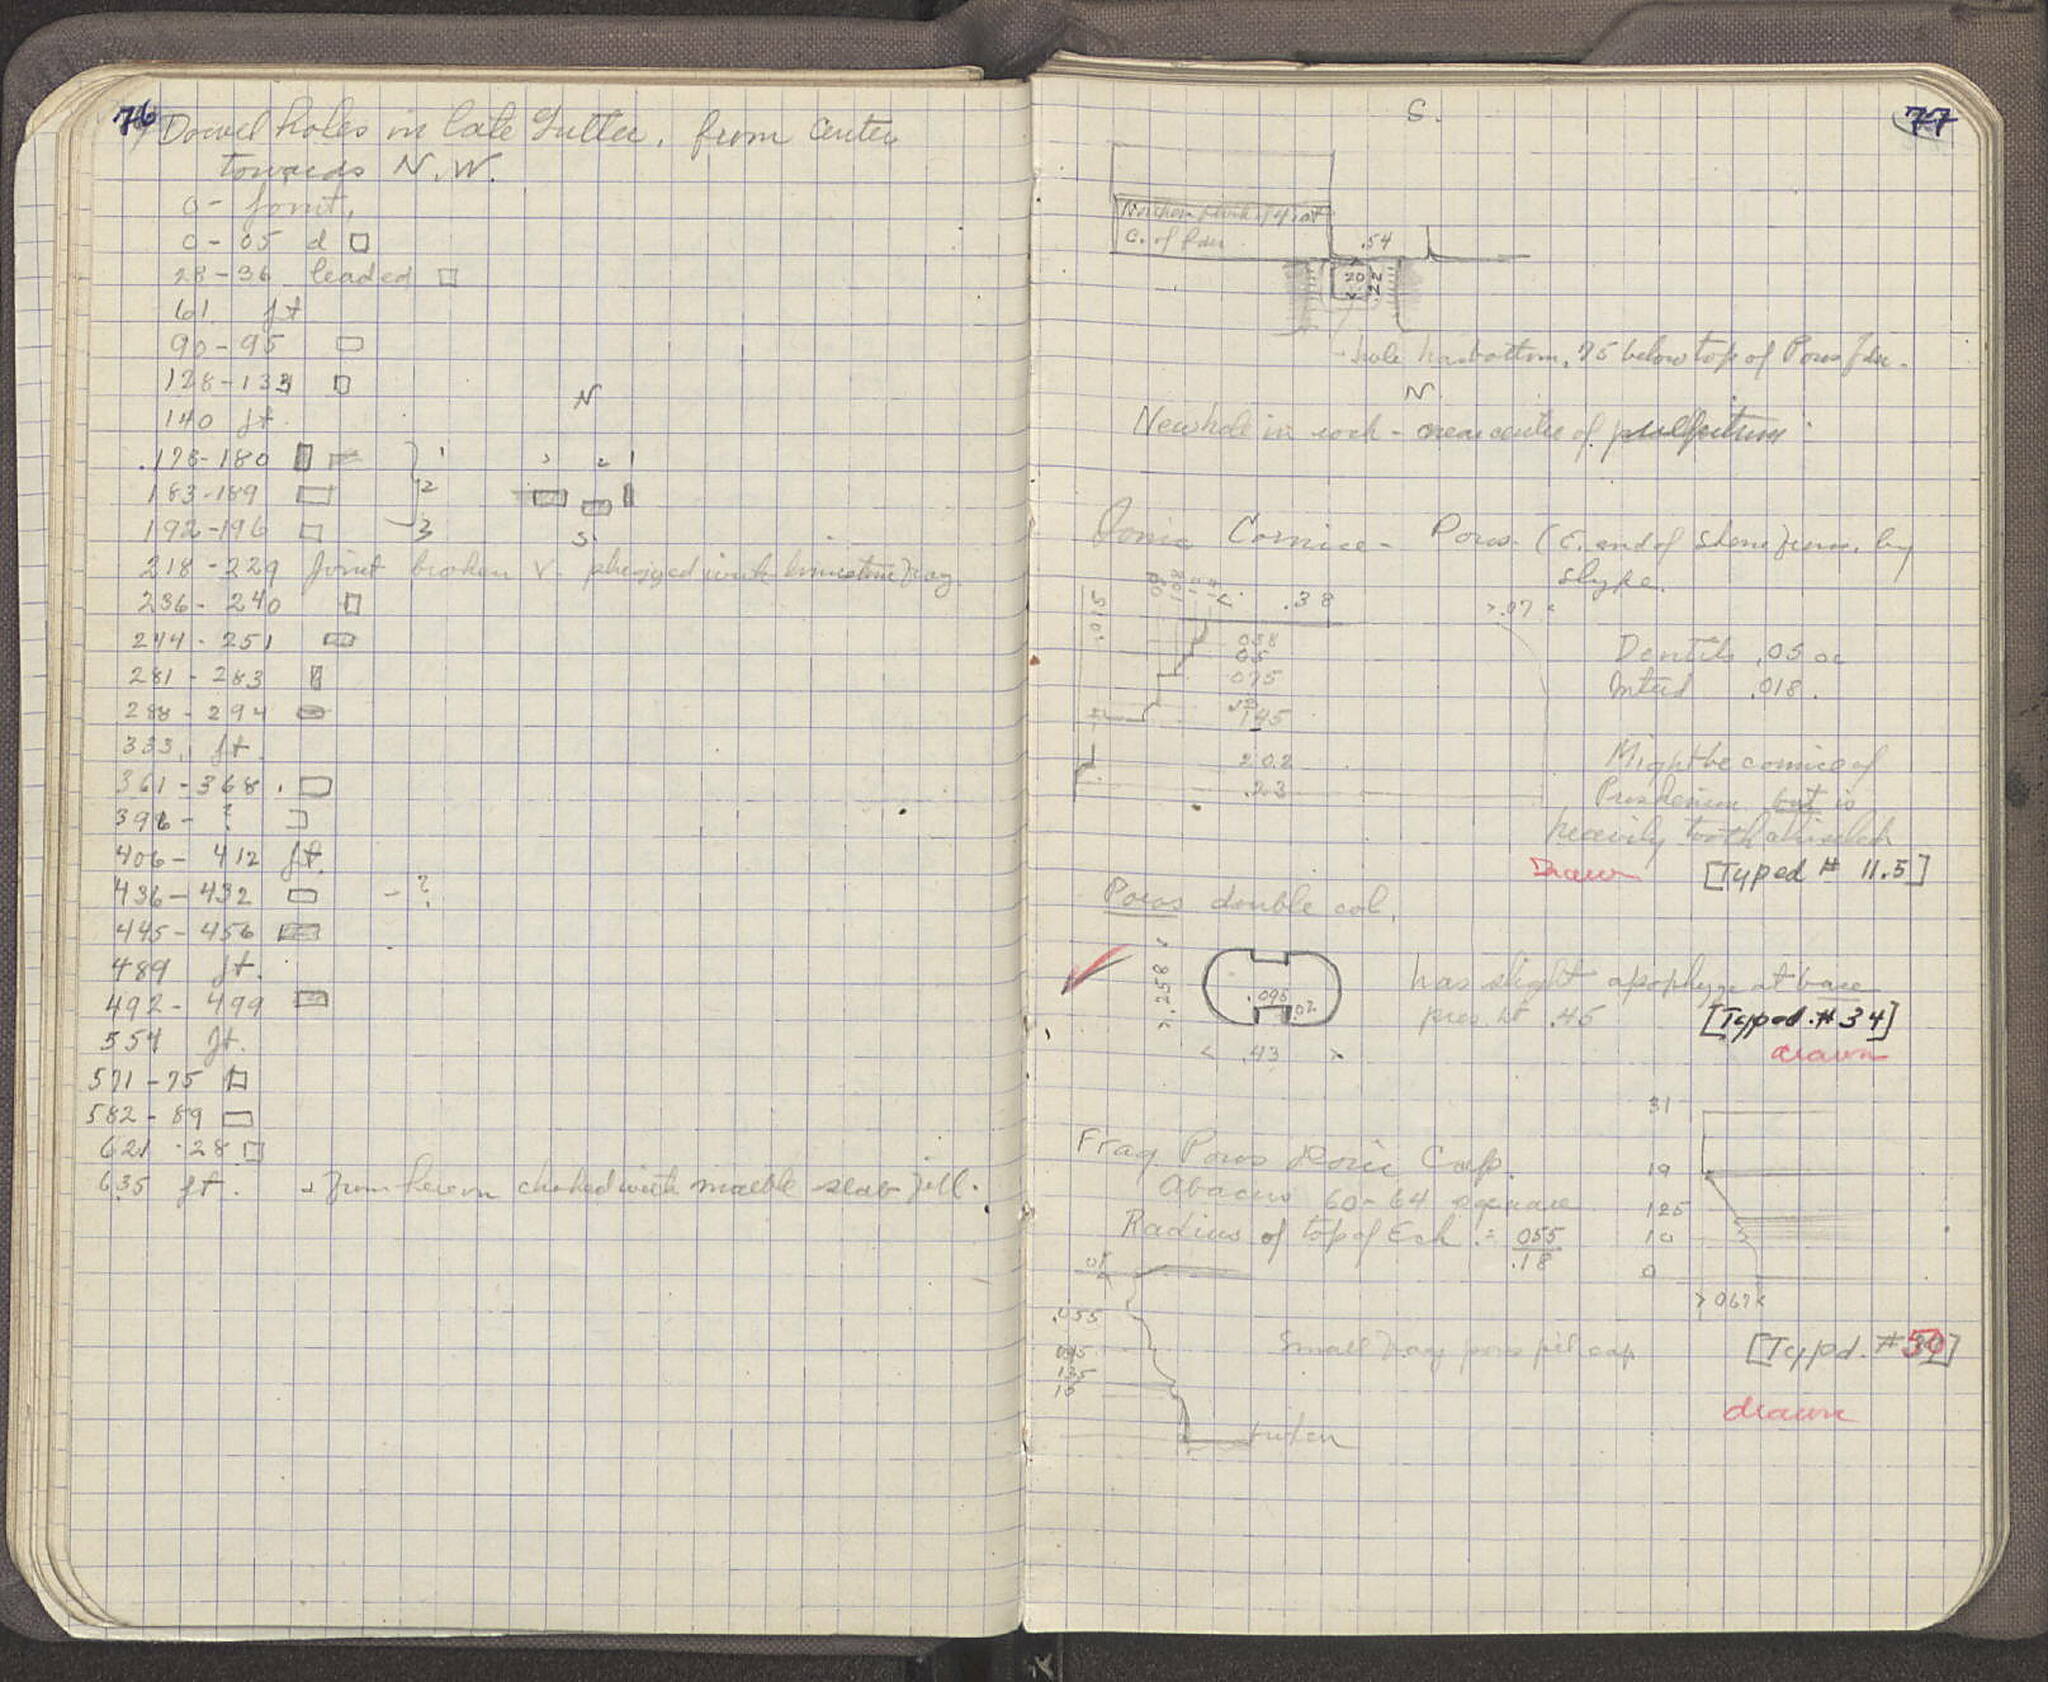 76
Dowel holes in late Gutter. from center
towards N.W.
0 - joint.
0 - 05 d
28 - 36 leaded
61 jt
90 - 95
128 - 133
140 jt.
.178 - 180 1
183 - 189 2
192 - 196 3
N
3 2 1
S
218 - 229 Joint broken & plugged with limestone frag.
236 - 240
244 - 251
281 - 283
288 - 294
333. jt.
361 - 368.
396 - ?
406 - 412 jt.
436 - 432 - ?
445 - 456
489 jt.
492 - 499
554 jt.
571 - 75
582 - 89
621 - 28
635 jt. from here on choked with marble slab fill.
77
S.
C. of
.54
20
22
hole has bottom .75 below top of Poros fdn.
N.
New hole in rock - near centre of pulpitum
Ionic Cornice - Poros. (E. end of Stone from. by
slype.
.015
.38
>.07<
038
05
075
145
202
.23
Dentils .05 oc
Interd .018.
Might be cornice of
Proskenion but is
heavily tooth chiseled
Drawn [Typed # 11.5]
Poros double col.
>.258<
.095
.02
< .43 >
has slight apophyge at base
pres. ht .45
[Typed. # 34]
drawn
Frag Poros Doric Cap.
Abacus 60 - 64 square
Radius of top of Ech. = 055
.18
31
19
125
10
0
>067<
01
.055
095
135
15
Small frag poros pil cap
[Typed. # 50]
drawn
broken